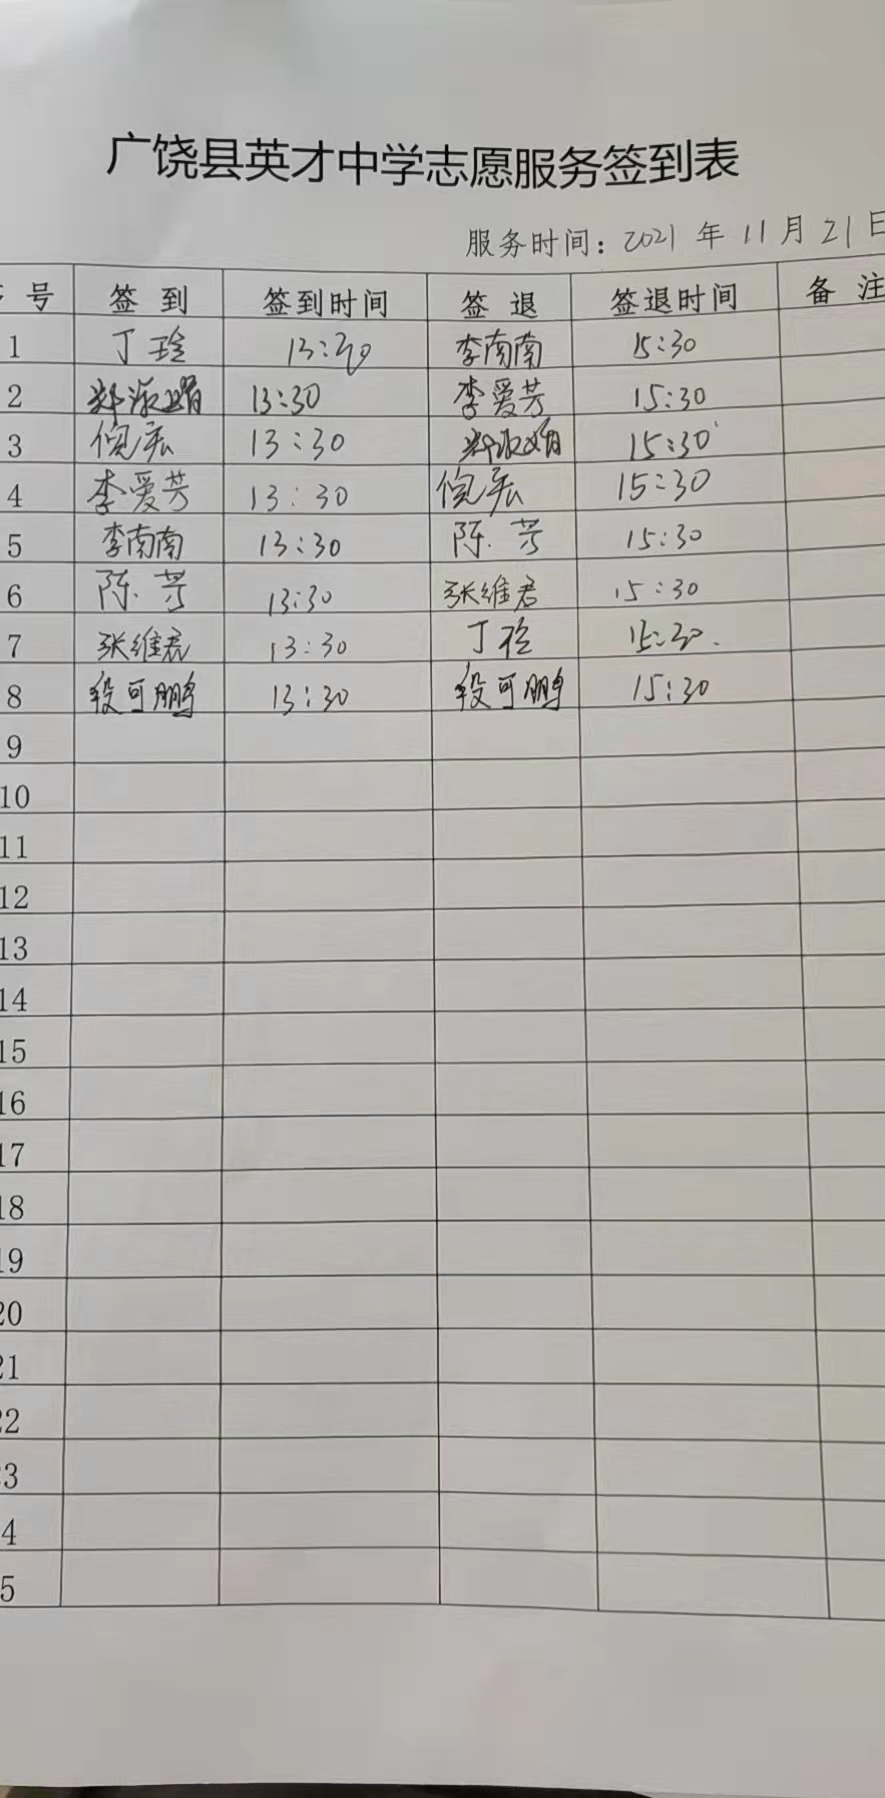 广饶县英才中学志愿服务签到表
服务时间：2021年11月21日
号 签到 签到时间 签退 签退时间 备注
1 丁 13:30 李南南 15:30
2 郑淑娟 13:30 李爱芳 15:30
3 倪宏 13:30 郑淑娟 15:30
4 李爱芳 13:30 倪宏 15:30
5 李南南 13:30 陈芳 15:30
6 陈芳 13:30 张维君 15:30
7 张维君 13:30 丁 15:30
8 段可鹏 13:30 段可鹏 15:30
9
10
11
12
13
14
15
16
17
18
19
20
21
22
23
4
5